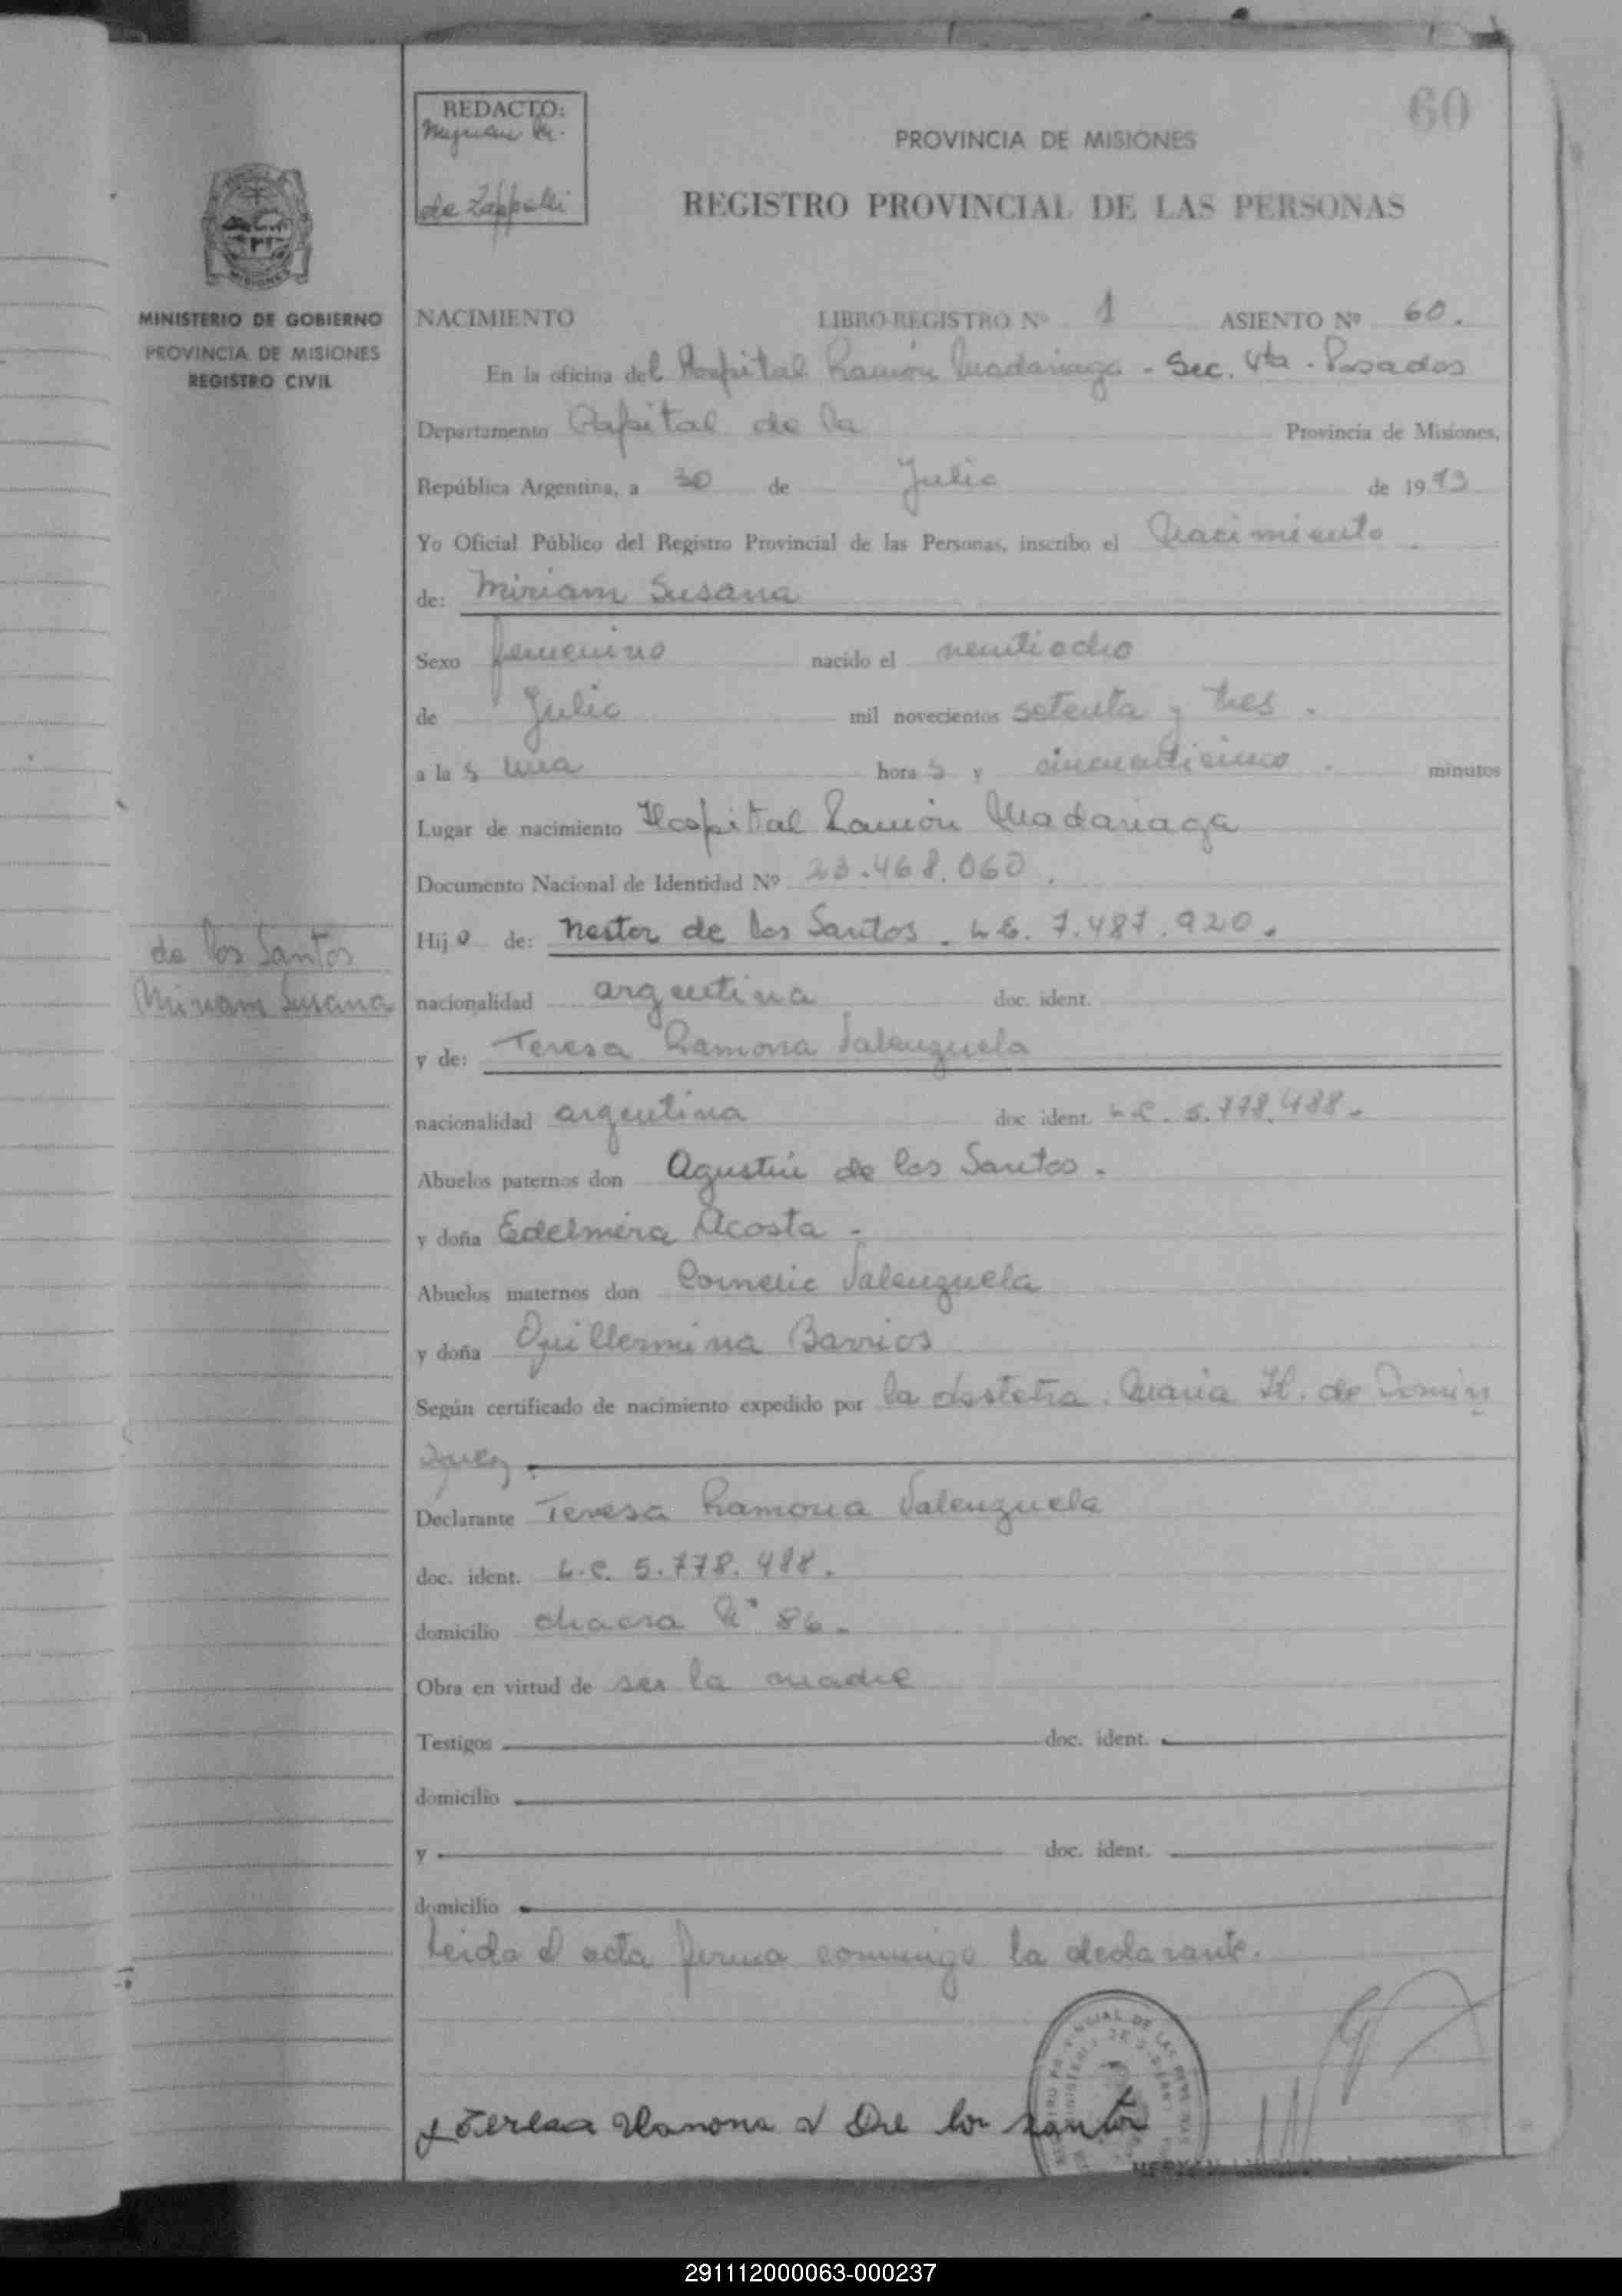 60
REDACTO:
de Zappelli
PROVINCIA DE MISIONES
REGISTRO PROVINCIAL DE LAS PERSONAS
MISIONES
MINISTERIO DE GOBIERNO
PROVINCIA DE MISIONES
REGISTRO CIVIL
NACIMIENTO LIBRO-REGISTRO Nº 1 ASIENTO Nº 60.
En la oficina del Hospital Ramón Madariaga - Sec. 4ta. Posadas
Departamento Capital de la Provincia de Misiones,
República Argentina, a 30 de Julio de 1973
Yo Oficial Público del Registro Provincial de las Personas, inscribo el Nacimiento.
de: Miriam Susana
Sexo femenino nacido el veintiocho
de Julio mil novecientos setenta y tres.
a la s una hora s y cincuenticinco. minutos
Lugar de nacimiento Hospital Ramón Madariaga
Documento Nacional de Identidad Nº 23.468.060.
Hij o de: Nestor de los Santos. L.E. 7.487.920.
de los Santos
Miriam Susana
nacionalidad argentina doc. ident.
y de: Teresa Ramona Valenzuela
nacionalidad argentina doc ident. L.C. 5.778.488.
Abuelos paternos don Agustín de los Santos.
y doña Edelmira Acosta -
Abuelos maternos don Cornelio Valenzuela
y doña Guillermina Barrios
Según certificado de nacimiento expedido por la obstetra. Maria H. de Domin
guez.
Declarante Teresa Ramona Valenzuela
doc. ident. L.C. 5.778.488.
domicilio chacra Nº 86.
Obra en virtud de ser la madre
Testigos doc. ident.
domicilio
y doc. ident.
domicilio
Leida el acta firma conmigo la declarante.
Teresa Ramona V De los Santos
291112000063-000237